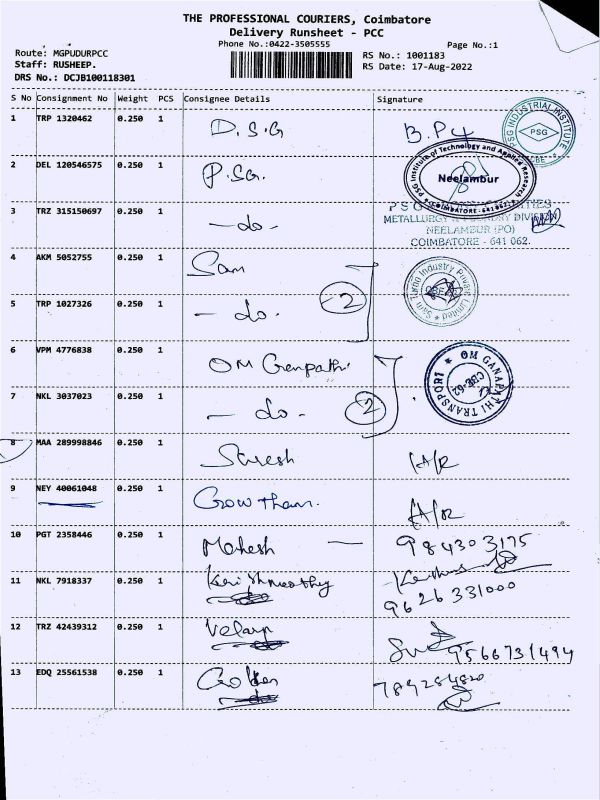 THE PROFESSIONAL COURIERS, Coimbatore
Delivery Runsheet - PCC
Phone No.:0422-3505555
Page No.:1
Route: MGPUDURPCC
RS No.: 1001183
Staff: RUSHEEP.
RS Date: 17-Aug-2022
DRS No.: DCJB100118301
S No Consignment No Weight PCS Consignee Details Signature
1 TRP 1320462 0.250 1 D.S.G B.P4
PSG INDUSTRIAL INSTITUTE
PSG
CBE
2 DEL 120546575 0.250 1 P.SG.
PSG Institute of Technology and Applied Research
Neelambur
COIMBATORE - 641 062
3 TRZ 315150697 0.250 1 - do -
P S G
METALLURGY & FOUNDRY DIVISION
NEELAMBUR (PO)
COIMBATORE - 641 062.
4 AKM 5052755 0.250 1 Sam
Industry Private Limited
5 TRP 1027326 0.250 1 - do - 2
6 VPM 4776838 0.250 1 OM Ganpathi
OM GANAPATHI TRANSPORT
CBE-62
7 NKL 3037023 0.250 1 - do - 2
8 MAA 289998846 0.250 1 Suresh
9 NEY 40061048 0.250 1 Gowtham.
10 PGT 2358446 0.250 1 Mahesh — 984303175
11 NKL 7918337 0.250 1 Kerishmoorthy
9626331000
12 TRZ 42439312 0.250 1 Velan
9566731494
13 EDQ 25561538 0.250 1
789284820